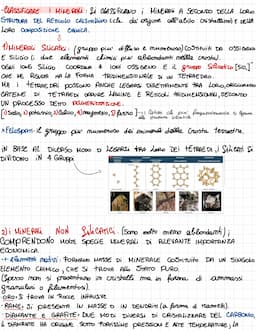 CLASSIFICARE I MINERALI: SI CLASSIFICANO I MINERALI A SECONDO DELLA LORO
STRUTTURA DEL RETICOLO CRISTALLINO (che dà origine all'abito cristallino) E DELLA
LORO COMPOSIZIONE CHIMICA.
1) MINERALI SILICATI: (gruppo più diffuso e numeroso) COSTITUITI DA OSSIGENO
E SILICIO (i due elementi chimici più abbondanti nella crosta).
OGNI IONE SILICIO COORDINA 4 IONI OSSIGENO E IL GRUPPO SILICATICO [SiO₄]⁴⁻
CHE NE RISULTA HA LA FORMA TRIDIMENSIONALE DI UN TETRAEDRO.
MA I TETRAEDRI POSSONO ANCHE LEGARSI DIRETTAMENTE TRA LORO, ORIGINANDO
CATENE DI TETRAEDRI OPPURE LAMINE E RETICOLI TRIDIMENSIONALI, SECONDO
UN PROCESSO DETTO POLIMERIZZAZIONE.
*Feldspati: il gruppo più numeroso dei minerali della crosta terrestre.
IN BASE AL DIVERSO MODO DI LEGARSI TRA LORO DEI TETRAEDRI, I SILICATI SI
DIVIDONO IN 4 GRUPPI
2) I MINERALI NON SILICATICI: (Sono molto meno abbondanti);
COMPRENDONO MOLTE SPECIE MINERALI DI RILEVANTE IMPORTANZA
ECONOMICA.
elementi nativi: FORMANO MASSE DI MINERALE COSTITUITE DA UN SINGOLO
ELEMENTO CHIMICO, CHE SI TROVA ALLO STATO PURO.
(spesso non si presentano in cristalli ma in forma di ammassi
granulari o filamentosi).
-ORO: SI TROVA IN ROCCE INTRUSIVE.
-RAME: SI PRESENTA IN MASSE O IN DENDRITI (a forma di rametti).
-DIAMANTE E GRAFITE: DUE MODI DIVERSI DI CRISTALLIZZARE DEL CARBONIO,
IL DIAMANTE HA ORIGINE SOTTO FORTISSIME PRESSIONI E ALTE TEMPERATURE, LA